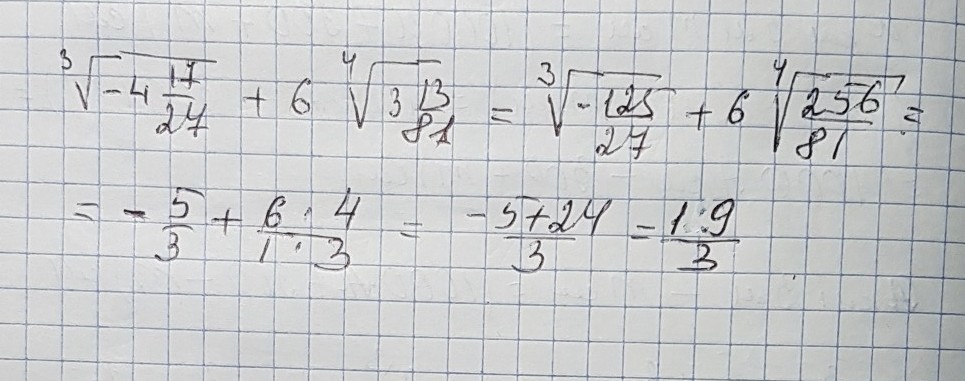 ∛(-4 17/27) + 6 ∜(3 13/81) = ∛(-125/27) + 6 ∜(256/81) =
= - 5/3 + (6 · 4)/(1 · 3) = (-5+24)/3 = 19/3